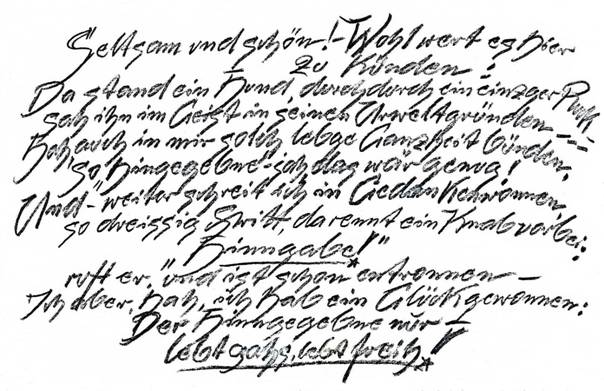 Seltsam und schön! - Wohl wert es hier
zu künden:
Da stand ein Hund durch durch ein einzger
sah ihn im Geist in seinen Urweltgründen -
auch in mir solch lebge Ganzheit bünden,
"so hingegebne" - sah das war genug!
Und - weiter schreit ich in Gedanken wonnen,
so dreissig Schritt, da rennt ein Knab vorbei:
"Hinngabe!"
ruft er, "und ist schon entronnen -
Ich aber, hah, ich hab ein Glück gewonnen:
Der Hinngegebne nur -
lebt ganz, lebt frei!